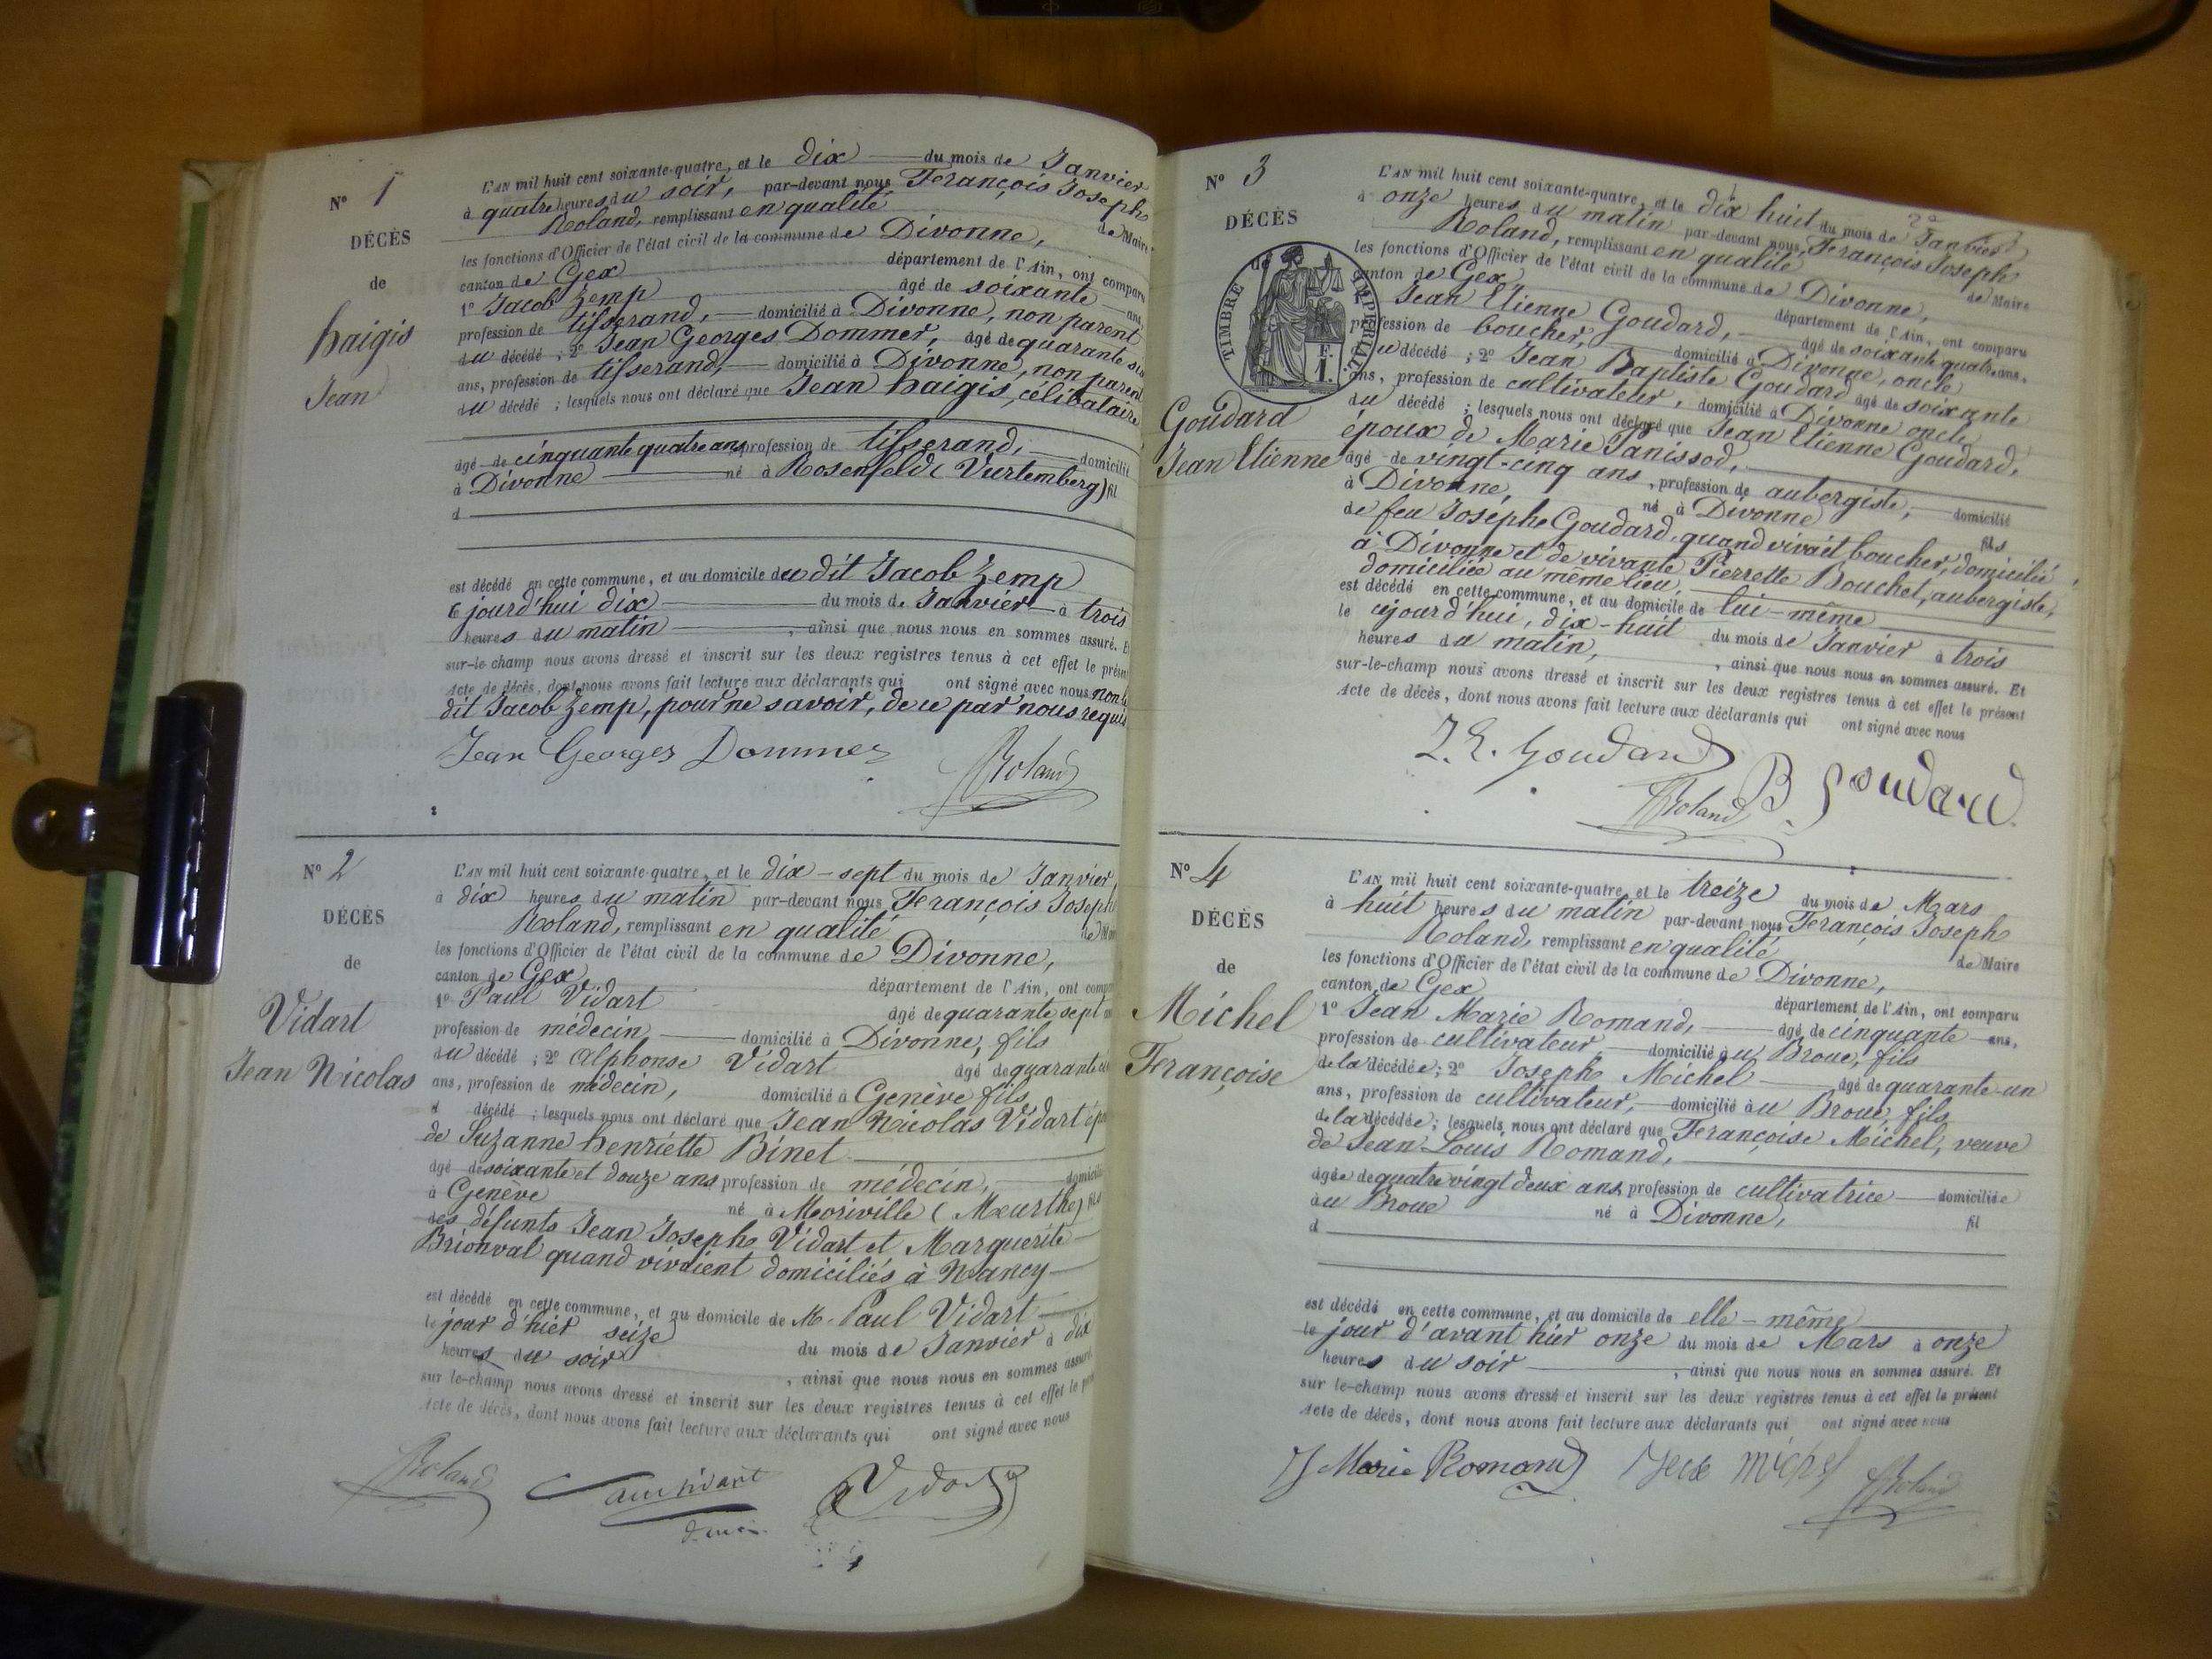 N° 1
DÉCÈS
de
haigis
Jean
L'AN mil huit cent soixante-quatre, et le dix du mois de Janvier
à quatre heures du soir, par-devant nous François Joseph
Roland, remplissant en qualité de Maire
les fonctions d'Officier de l'état civil de la commune de Divonne,
canton de Gex département de l'Ain, ont comparu
1° Jacob Zemp âgé de soixante ans,
profession de tisserand, domicilié à Divonne, non parent
du décédé ; 2° Jean Georges Dommer, âgé de quarante six
ans, profession de tisserand, domicilié à Divonne, non parent
du décédé ; lesquels nous ont déclaré que Jean haigis, célibataire
âgé de cinquante quatre ans, profession de tisserand, domicilié
à Divonne né à Rosenfeld (Vurtemberg) fil
d
est décédé en cette commune, et au domicile du dit Jacob Zemp
jourd'hui dix du mois de Janvier à trois
heures du matin, ainsi que nous nous en sommes assuré. Et
sur-le-champ nous avons dressé et inscrit sur les deux registres tenus à cet effet le présent
Acte de décès, dont nous avons fait lecture aux déclarants qui ont signé avec nous non le
dit Jacob Zemp, pour ne savoir, de ce par nous requis
Jean Georges Dommer Roland
N° 2
DÉCÈS
de
Vidart
Jean Nicolas
L'AN mil huit cent soixante-quatre, et le dix-sept du mois de Janvier
à dix heures du matin par-devant nous François Joseph
Roland, remplissant en qualité de
les fonctions d'Officier de l'état civil de la commune de Divonne,
canton de Gex, département de l'Ain, ont comp
1° Paul Vidart âgé de quarante sept
profession de médecin, domicilié à Divonne, fils
du décédé ; 2° Alphonse Vidart âgé de quarante
ans, profession de médecin, domicilié à Genève fils
d décédé ; lesquels nous ont déclaré que Jean Nicolas Vidart ép
de Suzanne henriette Binet
âgé de soixante et douze ans profession de médecin, domicilié
à Genève né à Moriville (Meurthe) fils
des défunts Jean Joseph Vidart et Marguerite
Brionval quand vivaient domiciliés à Nancy
est décédé en cette commune, et au domicile de M. Paul Vidart
le jour d'hier seize du mois de Janvier à dix
heures du soir, ainsi que nous nous en sommes assuré
sur le-champ nous avons dressé et inscrit sur les deux registres tenus à cet effet le
Acte de décès, dont nous avons fait lecture aux déclarants qui ont signé avec nous
Roland Vidart
N° 3
DÉCÈS
de
TIMBRE IMPÉRIAL
Goudard
Jean Etienne
L'AN mil huit cent soixante-quatre, et le dix huit du mois de Janvier
à onze heures du matin par-devant nous, François Joseph
Roland, remplissant en qualité de Maire
les fonctions d'Officier de l'état civil de la commune de Divonne,
canton de Gex département de l'Ain, ont comparu
Jean Etienne Goudard, âgé de soixante quatre ans,
profession de boucher, domicilié à Divonne, oncle
du décédé ; 2° Jean Baptiste Goudard âgé de soixante
ans, profession de cultivateur, domicilié à Divonne oncle
du décédé ; lesquels nous ont déclaré que Jean Etienne Goudard,
époux de Marie Janissod,
âgé de vingt-cinq ans, profession de aubergiste, domicilié
à Divonne, né à Divonne fils
de feu Joseph Goudard, quand vivait boucher, domicilié
à Divonne et de vivante Pierrette Bouchet, aubergiste,
domiciliée au même lieu,
est décédé en cette commune, et au domicile de lui-même
le cejourd'hui, dix-huit du mois de Janvier à trois
heures du matin, ainsi que nous nous en sommes assuré. Et
sur-le-champ nous avons dressé et inscrit sur les deux registres tenus à cet effet le présent
Acte de décès, dont nous avons fait lecture aux déclarants qui ont signé avec nous
J. E. Goudard B. Goudard
Roland
N° 4
DÉCÈS
de
Michel
Françoise
L'AN mil huit cent soixante-quatre, et le treize du mois de Mars
à huit heures du matin par-devant nous François Joseph
Roland, remplissant en qualité de Maire
les fonctions d'Officier de l'état civil de la commune de Divonne,
canton de Gex département de l'Ain, ont comparu
1° Jean Marie Romand, âgé de cinquante ans,
profession de cultivateur, domicilié au Broue, fils
de la décédée ; 2° Joseph Michel âgé de quarante-un
ans, profession de cultivateur, domicilié au Broue, fils
de la décédée ; lesquels nous ont déclaré que Françoise Michel, veuve
de Jean Louis Romand,
âgée de quatre vingt deux ans, profession de cultivatrice domiciliée
au Broue né à Divonne, fil
d
est décédé en cette commune, et au domicile de elle-même
le jour d'avant hier onze du mois de Mars à onze
heures du soir, ainsi que nous nous en sommes assuré. Et
sur le-champ nous avons dressé et inscrit sur les deux registres tenus à cet effet le présent
Acte de décès, dont nous avons fait lecture aux déclarants qui ont signé avec nous
J Marie Romand Michel Roland